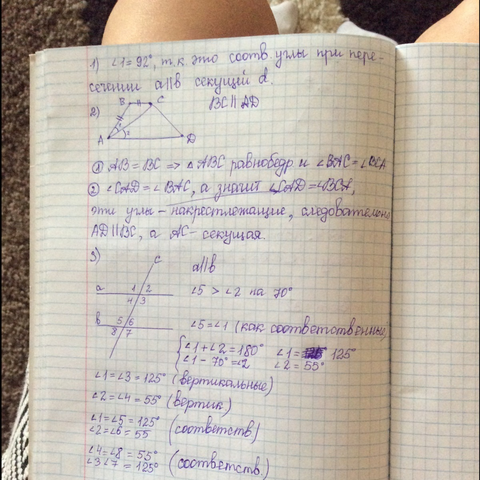 1) ∠1 = 92°, т.к. это соотв. углы при пере-
сечении a∥b секущей d.
2) B C BC ∥ AD
A D
① AB = BC => △ABC равнобедр и ∠BAC = ∠BCA
② ∠CAD = ∠BAC, а значит ∠CAD = ∠BCA,
эти углы - накрестлежащие, следовательно
AD∥BC, а AC - секущая.
3) c
a∥b
a 1 2
∠5 > ∠2 на 70°
4 3
b 5 6
∠5 = ∠1 (как соответственные)
8 7
∠1 + ∠2 = 180° ∠1 = 125°
∠1 - 70° = ∠2 ∠2 = 55°
∠1 = ∠3 = 125° (вертикальные)
∠2 = ∠4 = 55° (вертик)
∠1 = ∠5 = 125° (соответств)
∠2 = ∠6 = 55
∠4 = ∠8 = 55° (соответств.)
∠3 ∠7 = 125°